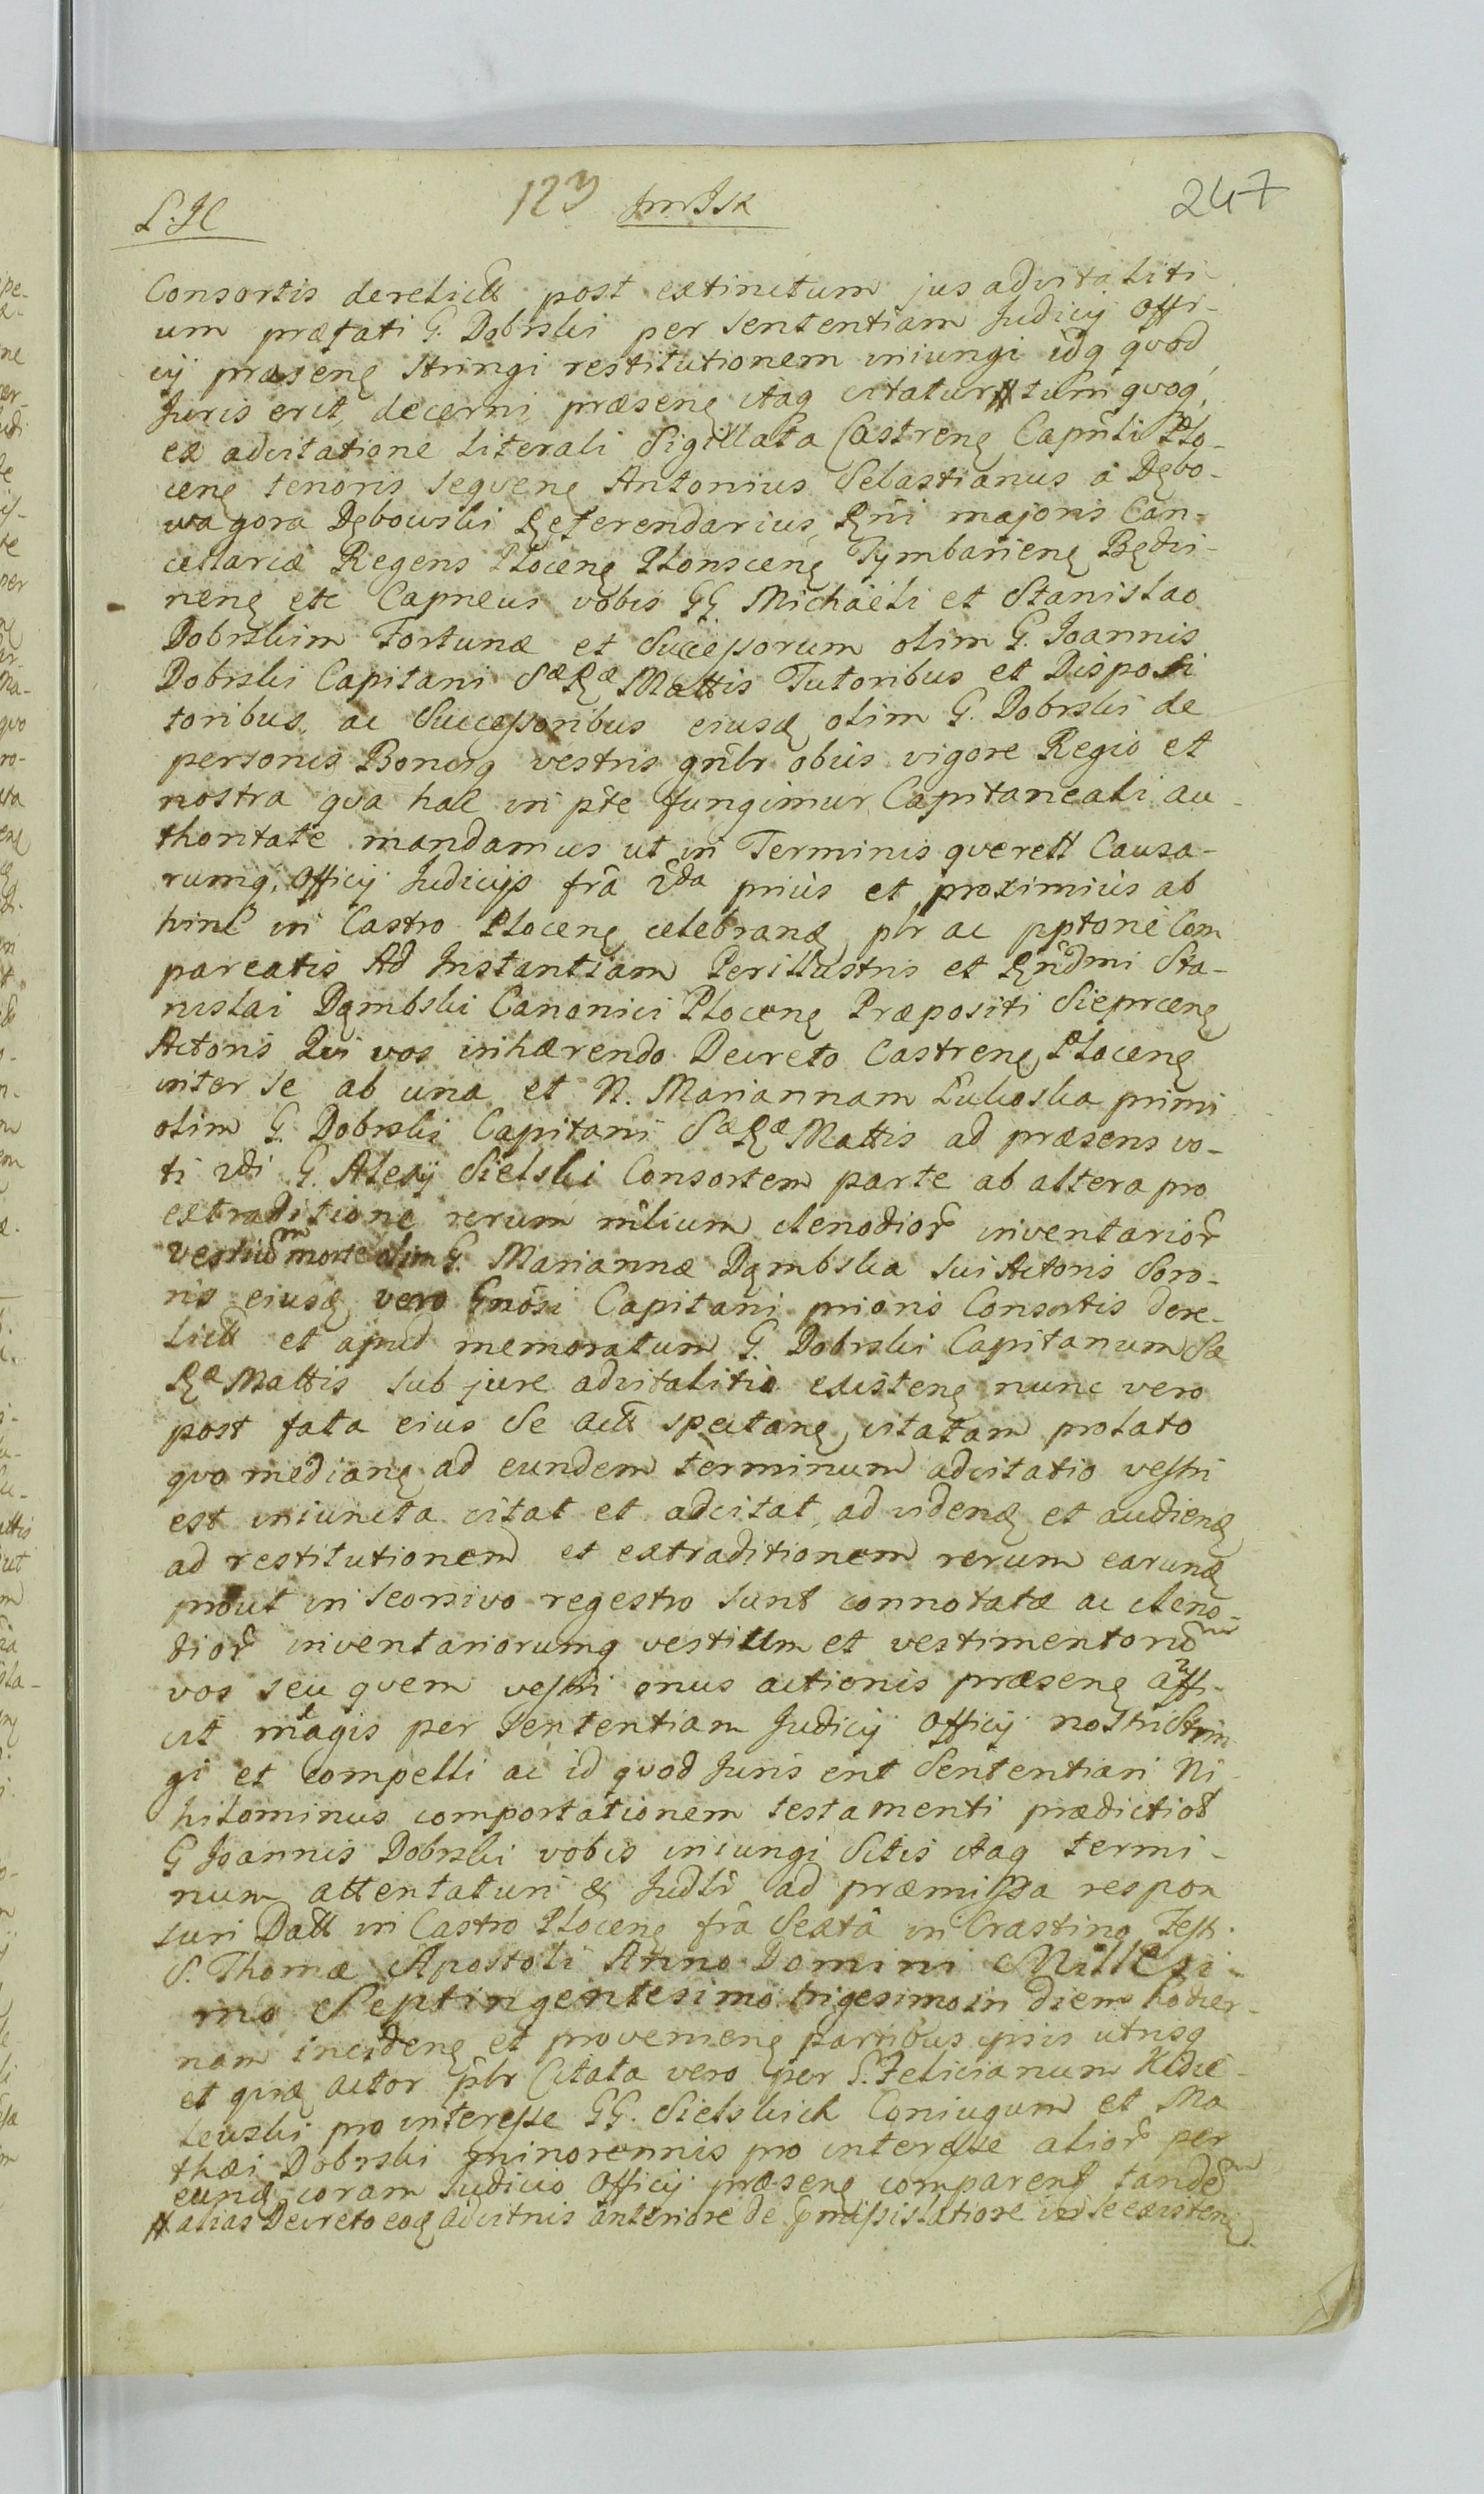 123
247
Consortis derelictt post extinctum jus advitaliti-
um præfati G. Dobrski per sententiam Judicij Offi-
cij præsenę stringi restitutionem iniungi idq quod
Juris erit, decerni præsenę itaq citatur # tum quoq,
ex adcitatione literali Sigillata Castrenę Capnli Plo-
cenę tenoris sequenę Antonius Sebastianus a Dębo-
wagora Dębowski Referendarius, Rni majoris Can-
cellariæ Regens Plocenę Plonscenę Tymbarienę Będzi-
nenę etc Capneus vobis GG Michaeli et Stanislao
Dobrskim Fortunæ et Successorum olim G. Joannis
Dobrski Capitani SæRæ Mattis Tutoribus et Disposi
toribus, ac Successoribus eiusdę olim G. Dobrski de
personis Bonisq vestris gnlr obus vigore Regio et
nostra qva hac in pte fungimur Capitaneali au-
thoritate mandamus ut in Terminis querett Causa-
rumq, Officij Judicijs fra 2da prius et proximius ab
hinc in Castro Plocenę celebrandę plr ac pptorie Com
pareatis Ad Instantiam Perillustris et Rndmi Sta-
nislai Dąmbski Canonici Plocenę Præpositi Sieprcenę
Actoris Qui vos inhærendo Decreto Castrenę Plocenę
inter se ab una et N. Mariannam Łukoska primi
olim G. Dobrski Capitani SæRæ Mattis ad præsens vo-
ti 2di G. Alexij Sielski Consortem parte ab altera pro
extraditione rerum mlium clenodior inventarior
vestium morte olim G. Mariannæ Dąmbska sui Actoris Soro-
ris eiusdę vero Gnosi Capitani prioris Consortis dere-
lictt et apud memoratum G. Dobrski Capitanum Sæ
Ræ Mattis sub jure advitalitio existenę nunc vero
post fata eius se actt spectanę, citatam prolato
quo medianę ad eundem terminum adcitatio vestri
est iniuncta citat et adcitat, ad videndę et audiendę
ad restitutionem et extraditionem rerum earundę
prout in seorsivo regestro sunt connotatæ ac cleno-
dior inventariorumq vestium et vestimentorum
vos seu quem vestri onus actionis præsenę affi-
cit magis per Sententiam Judicij Officij nostri strin
gi et compelli ac id quod Juris erit Sententiari Ni
hilominus comportationem testamenti prædicti olt
G Joannis Dobrski vobis iniungi Sitis itaq termi-
num attentaturi & Judlr ad præmissa respon
suri Datt in Castro Plocenę fra Sexta in Crastino Festi
S. Thomæ Apostoli Anno Domini Millesi-
mo Septingentesimo trigesimo in diem hodier-
nam incidenę et provenienę partibus ipsis utrisq
et quidę actor plr Citata vero per S. Felicianum
pro interesse GG. Sielskich Coniugum et Ma
thæi Dobrski minorennis pro interesse alior per
eundę coram Judicio Officij præsenę comparent tandem
# alias Decreto eodę adcitnis anteriore de præmissis latiore in se existenę